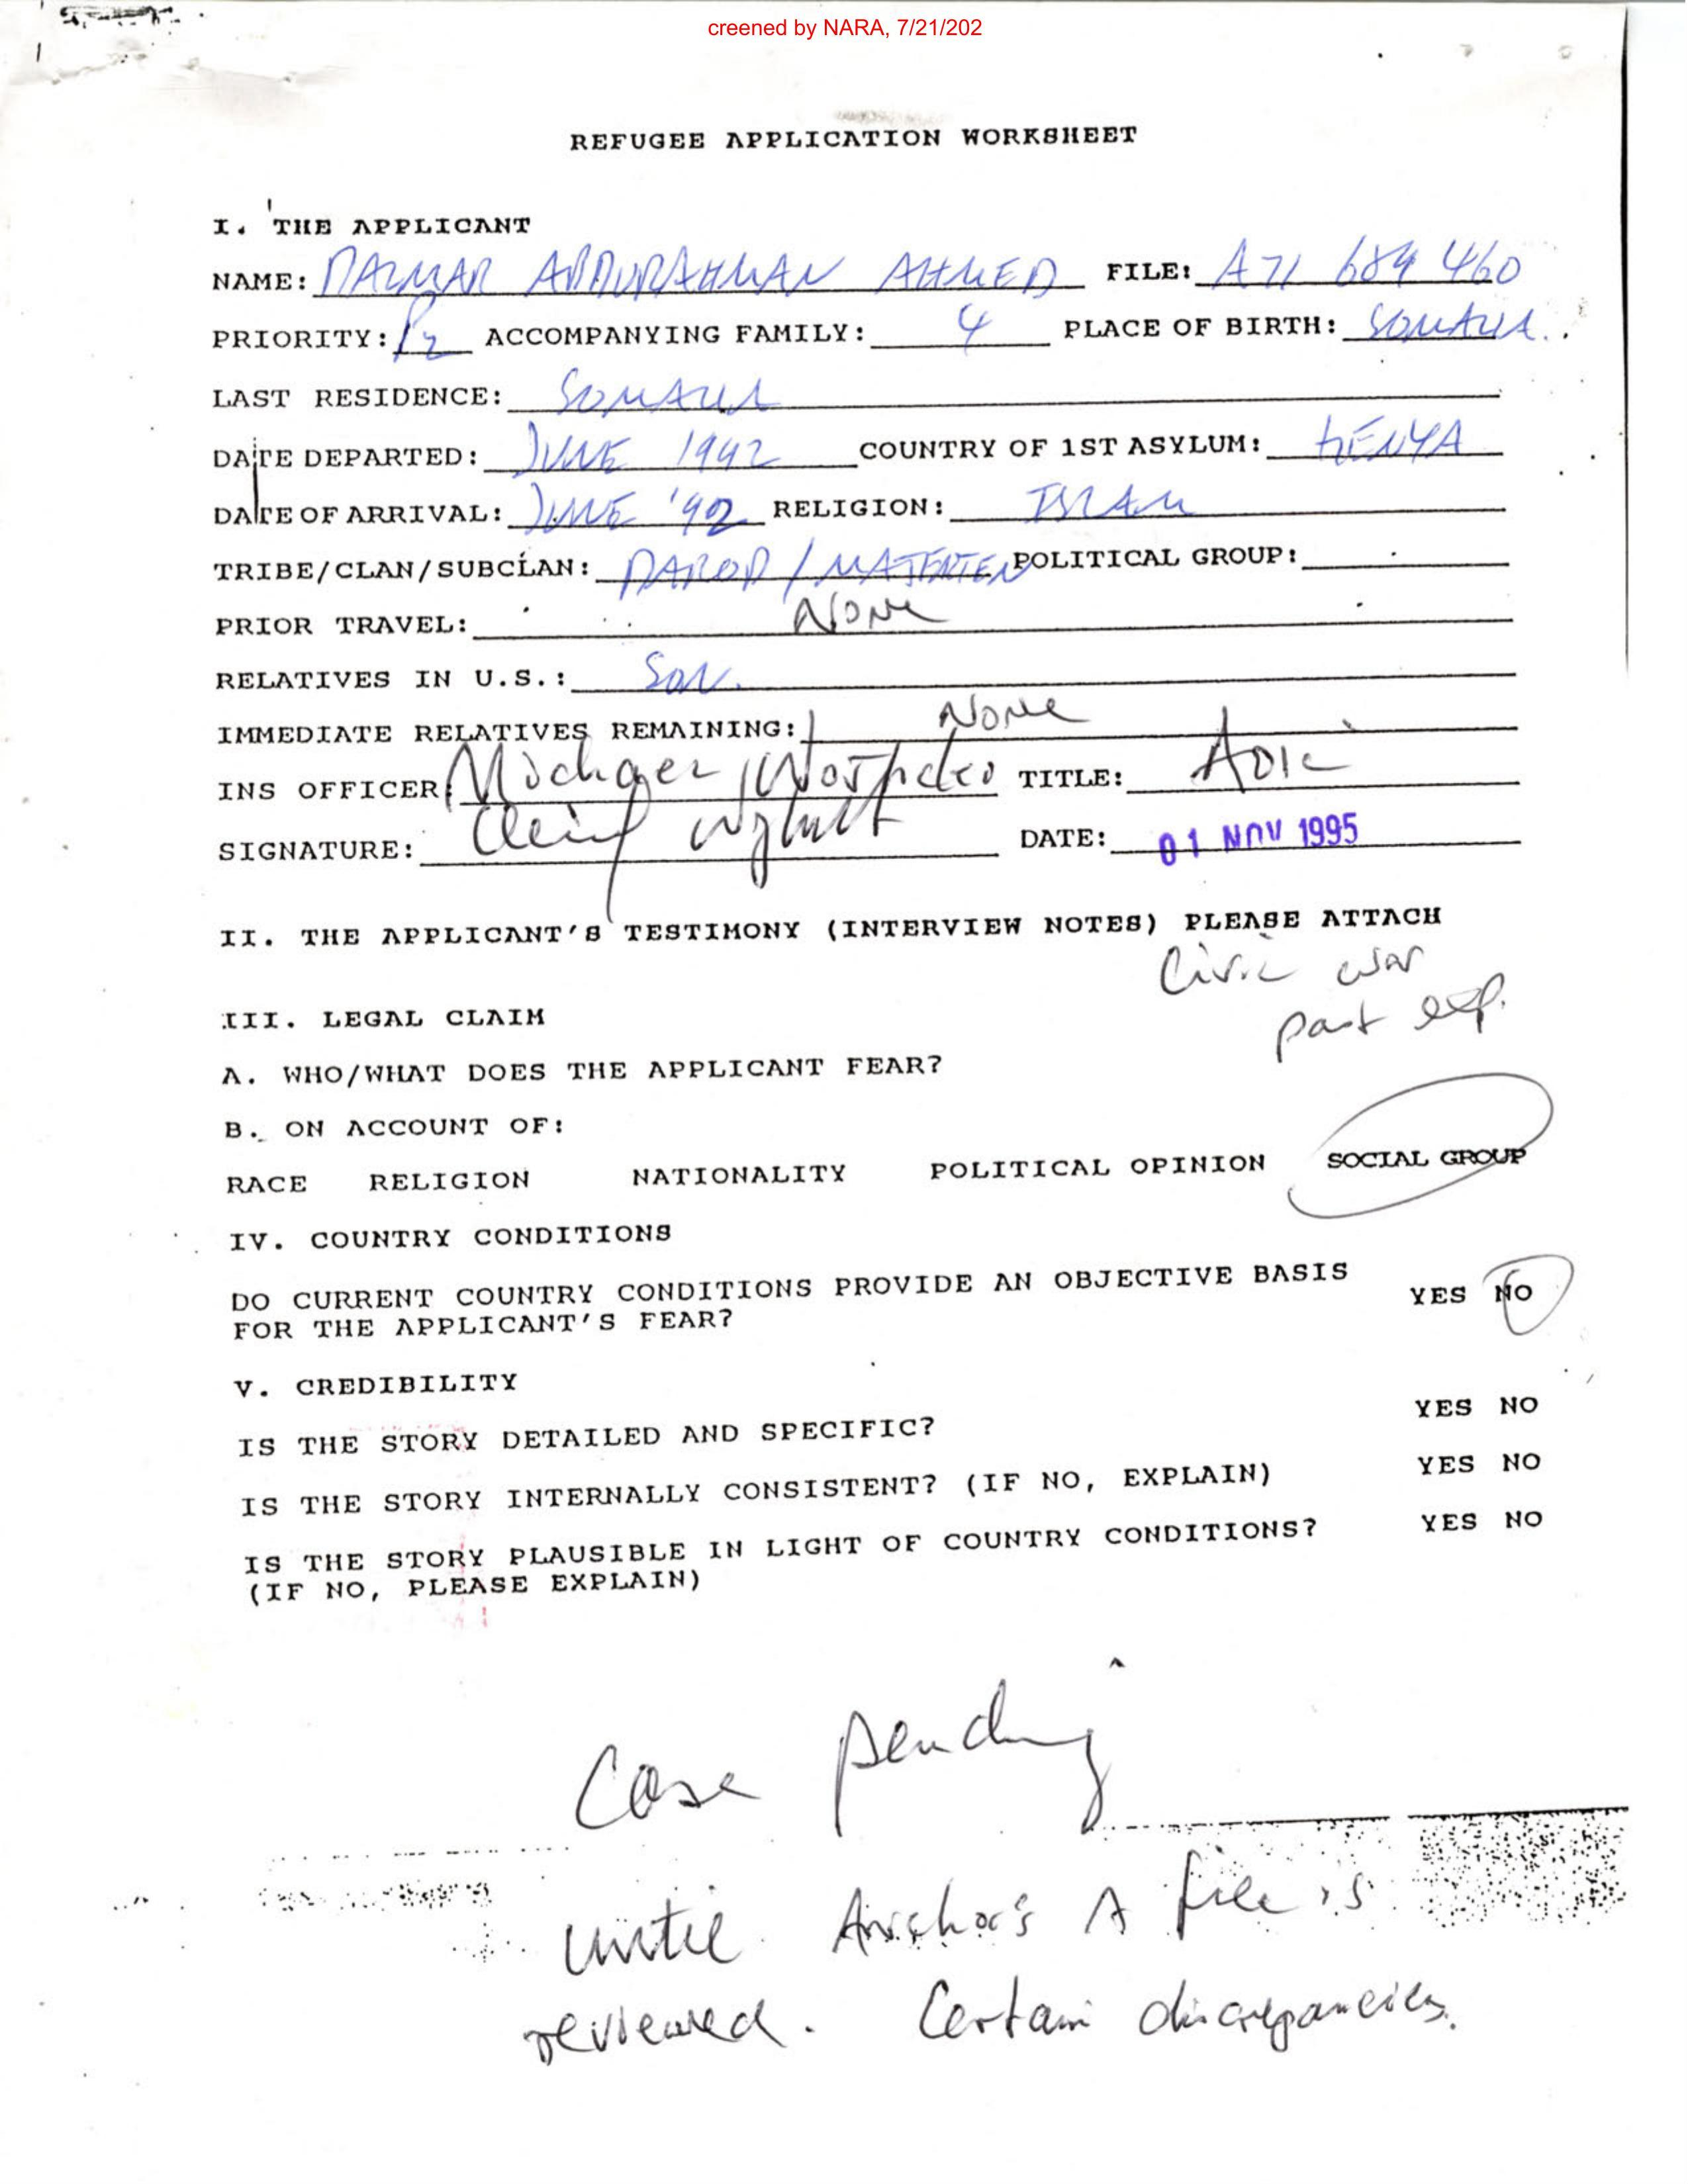 creened by NARA, 7/21/202
REFUGEE APPLICATION WORKSHEET
I. THE APPLICANT
NAME: DALMAR ABDURAHMAN AHMED FILE: A71 689 460
PRIORITY: P2 ACCOMPANYING FAMILY: 4 PLACE OF BIRTH: SOMALIA.
LAST RESIDENCE: SOMALIA
DATE DEPARTED: JUNE 1992 COUNTRY OF 1ST ASYLUM: KENYA
DATE OF ARRIVAL: JUNE '92 RELIGION: ISLAM
TRIBE/CLAN/SUBCLAN: DAROD / MAJERTEN POLITICAL GROUP:
PRIOR TRAVEL: None
RELATIVES IN U.S.: SON.
IMMEDIATE RELATIVES REMAINING: None
INS OFFICER: Michael TITLE:
SIGNATURE: DATE: 01 NOV 1995
II. THE APPLICANT'S TESTIMONY (INTERVIEW NOTES) PLEASE ATTACH
Civil war
past exp.
III. LEGAL CLAIM
A. WHO/WHAT DOES THE APPLICANT FEAR?
B. ON ACCOUNT OF:
RACE RELIGION NATIONALITY POLITICAL OPINION SOCIAL GROUP
IV. COUNTRY CONDITIONS
DO CURRENT COUNTRY CONDITIONS PROVIDE AN OBJECTIVE BASIS YES NO
FOR THE APPLICANT'S FEAR?
V. CREDIBILITY
IS THE STORY DETAILED AND SPECIFIC? YES NO
IS THE STORY INTERNALLY CONSISTENT? (IF NO, EXPLAIN) YES NO
IS THE STORY PLAUSIBLE IN LIGHT OF COUNTRY CONDITIONS? YES NO
(IF NO, PLEASE EXPLAIN)
Case pending
until Anchor's A file is
reviewed. Certain discrepancies.